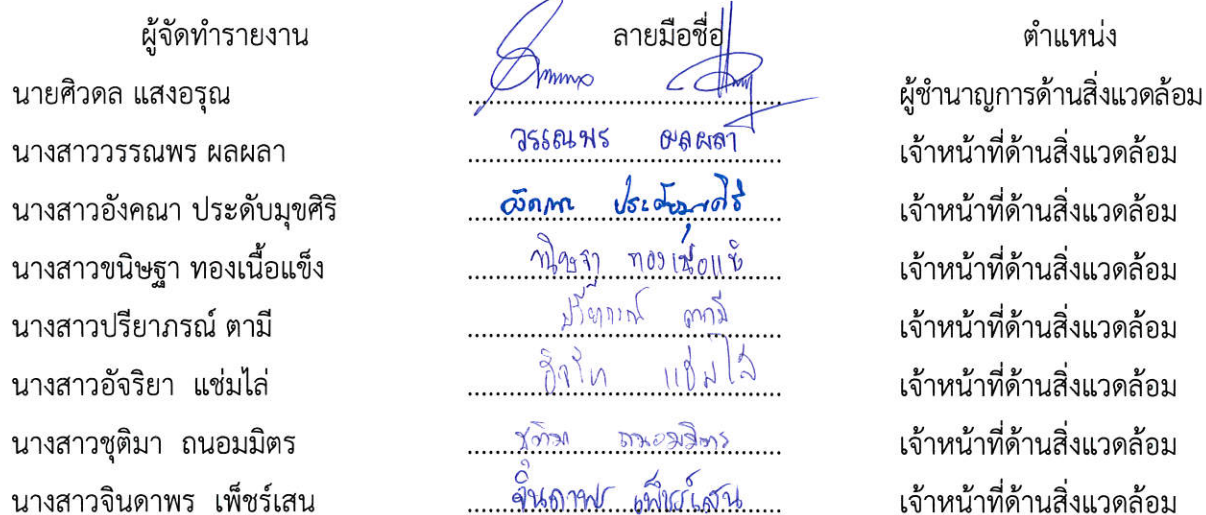 ผู้จัดทำรายงาน ลายมือชื่อ ตำแหน่ง
นายศิวดล แสงอรุณ ........................................ ผู้ชำนาญการด้านสิ่งแวดล้อม
นางสาววรรณพร ผลผลา วรรณพร ผลผลา เจ้าหน้าที่ด้านสิ่งแวดล้อม
นางสาวอังคณา ประดับมุขศิริ อังคณา ประดับมุขศิริ เจ้าหน้าที่ด้านสิ่งแวดล้อม
นางสาวขนิษฐา ทองเนื้อแข็ง ขนิษฐา ทองเนื้อแข็ง เจ้าหน้าที่ด้านสิ่งแวดล้อม
นางสาวปรียาภรณ์ ตามี ปรียาภรณ์ ตามี เจ้าหน้าที่ด้านสิ่งแวดล้อม
นางสาวอัจริยา แช่มไล่ อัจริยา แช่มไล่ เจ้าหน้าที่ด้านสิ่งแวดล้อม
นางสาวชุติมา ถนอมมิตร ชุติมา ถนอมมิตร เจ้าหน้าที่ด้านสิ่งแวดล้อม
นางสาวจินดาพร เพ็ชร์เสน จินดาพร เพ็ชร์เสน เจ้าหน้าที่ด้านสิ่งแวดล้อม